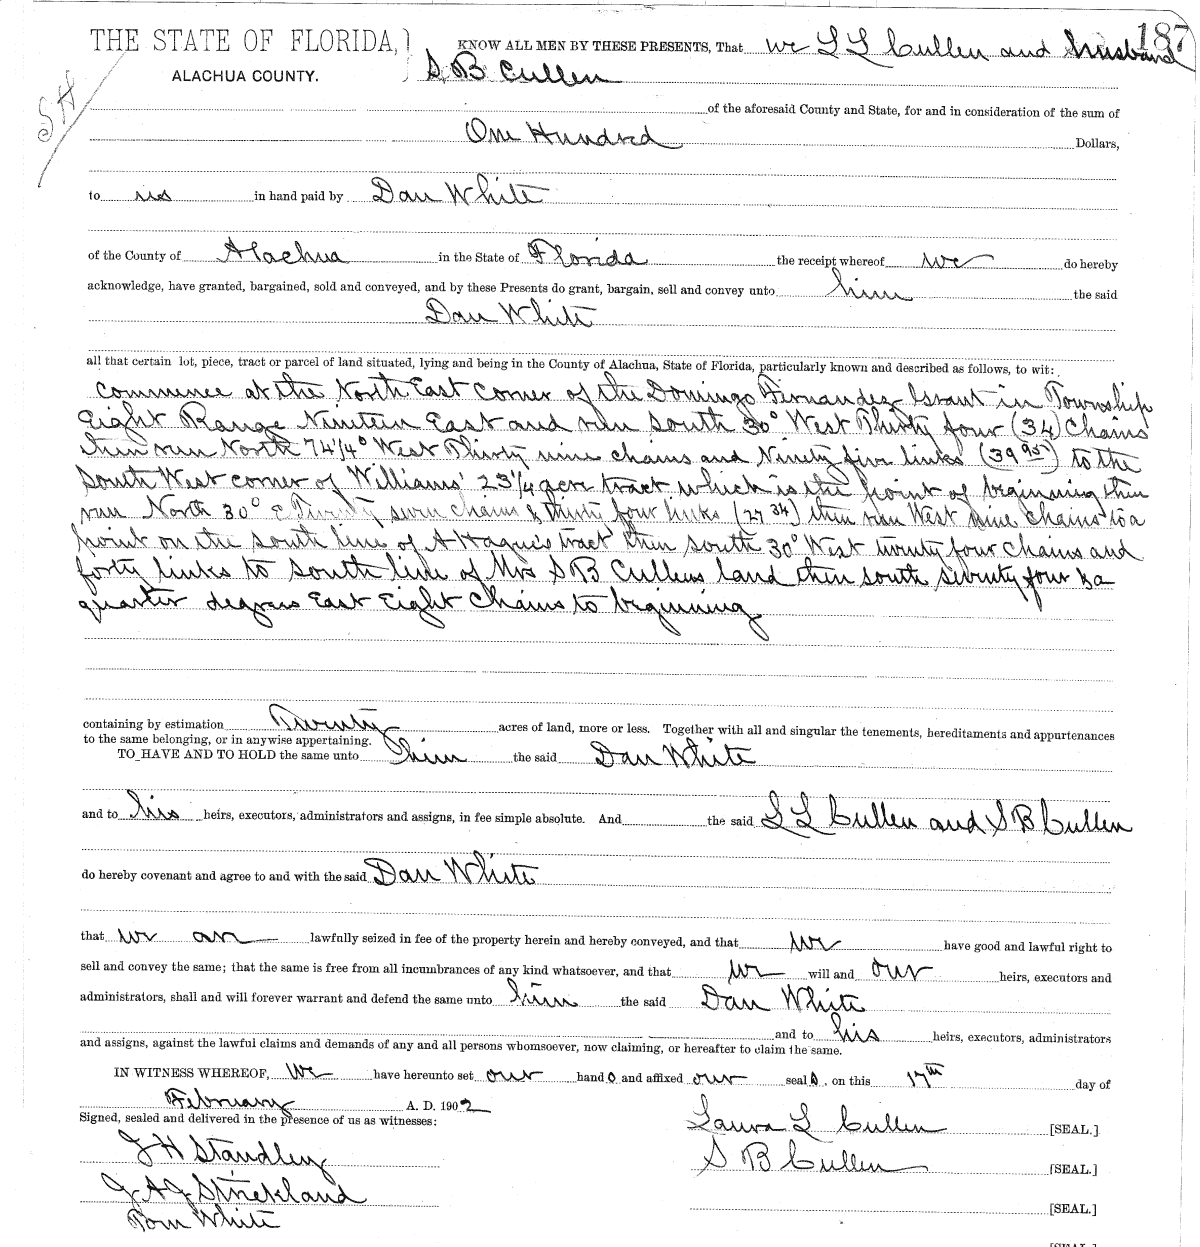 187
THE STATE OF FLORIDA,
ALACHUA COUNTY.
SH
KNOW ALL MEN BY THESE PRESENTS, That we L L Cullen and husband
S B Cullen
of the aforesaid County and State, for and in consideration of the sum of
One Hundred Dollars,
to us in hand paid by Dan White
of the County of Alachua in the State of Florida the receipt whereof we do hereby
acknowledge, have granted, bargained, sold and conveyed, and by these Presents do grant, bargain, sell and convey unto him the said
Dan White
all that certain lot, piece, tract or parcel of land situated, lying and being in the County of Alachua, State of Florida, particularly known and described as follows, to wit:
Commence at the North East corner of the Domingo Fernandez Grant in Township
Eight Range Nineteen East and run South 30° West Thirty four (34) Chains
then run North 74 1/4° West Thirty nine chains and Ninety five links (39 95) to the
South West corner of Williams' 23 1/4 acre tract which is the point of beginning then
run North 30° E Twenty seven chains & thirty four links (27 34) then run West nine chains to a
point on the south line of A Hague's tract then south 30° West twenty four chains and
forty links to south line of Mrs S B Cullens land then south seventy four & a
quarter degrees East Eight Chains to beginning
containing by estimation Twenty acres of land, more or less. Together with all and singular the tenements, hereditaments and appurtenances
to the same belonging, or in anywise appertaining.
TO HAVE AND TO HOLD the same unto him the said Dan White
and to his heirs, executors, administrators and assigns, in fee simple absolute. And the said L L Cullen and S B Cullen
do hereby covenant and agree to and with the said Dan White
that we are lawfully seized in fee of the property herein and hereby conveyed, and that we have good and lawful right to
sell and convey the same; that the same is free from all incumbrances of any kind whatsoever, and that we will and our heirs, executors and
administrators, shall and will forever warrant and defend the same unto him the said Dan White
and to his heirs, executors, administrators
and assigns, against the lawful claims and demands of any and all persons whomsoever, now claiming, or hereafter to claim the same.
IN WITNESS WHEREOF, We have hereunto set our hands and affixed our seals, on this 17th day of
February A. D. 1902
Signed, sealed and delivered in the presence of us as witnesses:
Laura L Cullen [SEAL.]
J H Standley
S B Cullen [SEAL.]
J A J Strickland
[SEAL.]
Tom White
[SEAL.]